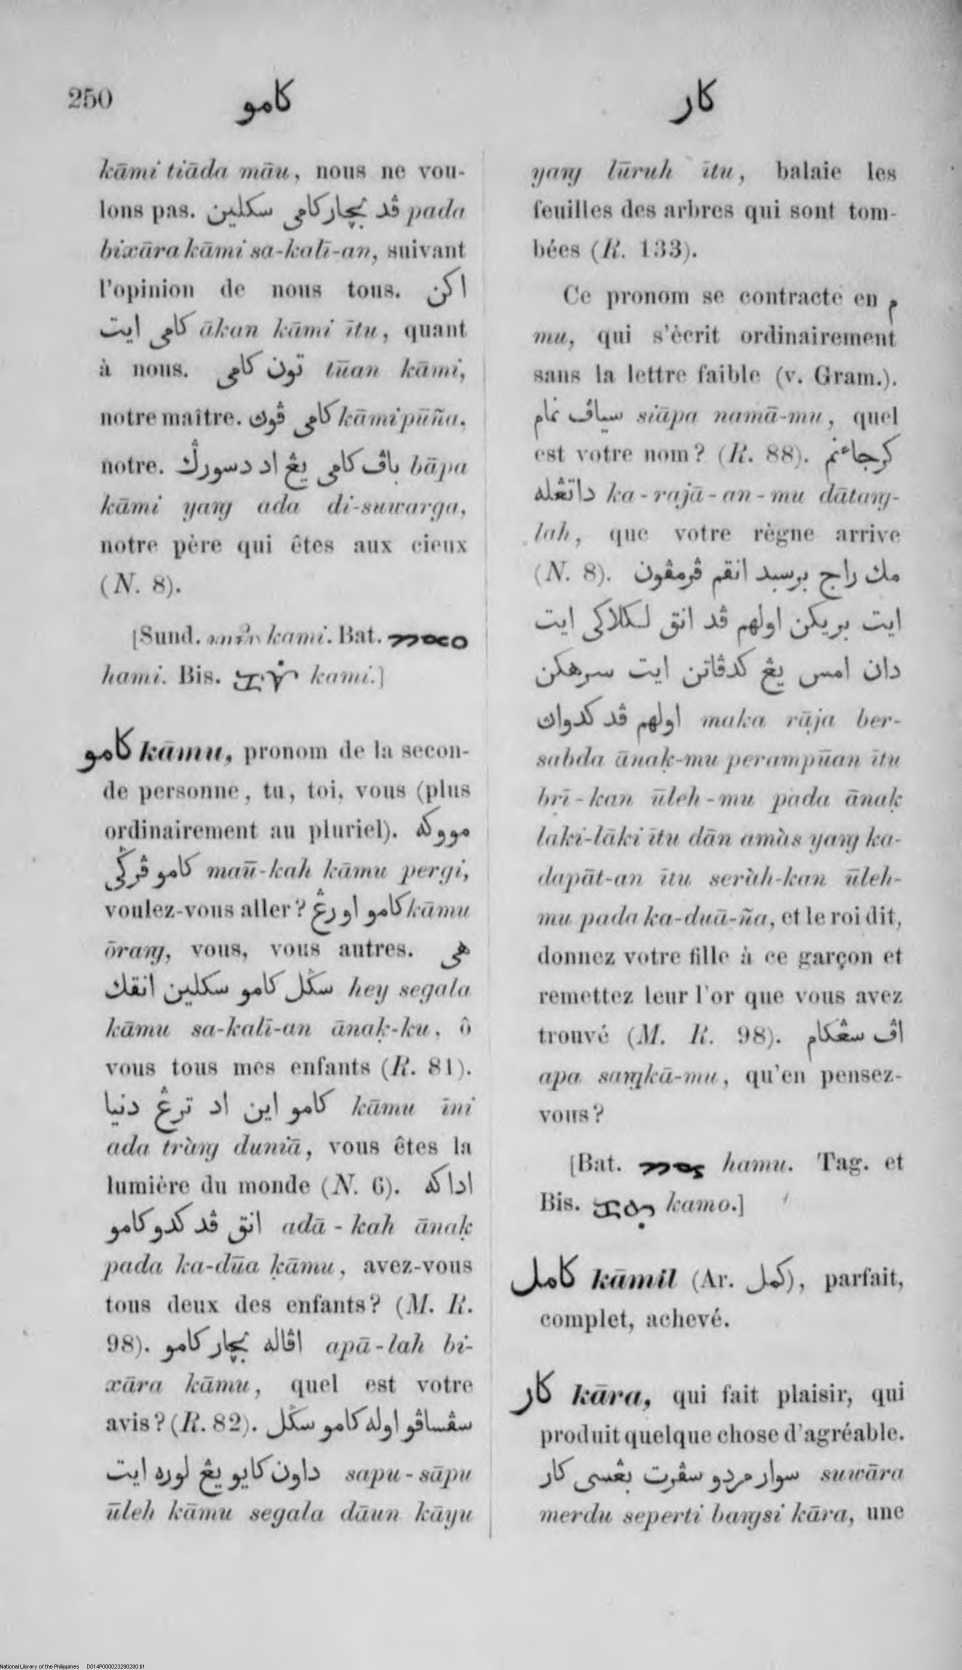 250 كامو كار
kāmi tiāda māu, nous ne vou-
lons pas. ڤد بچار كامي سكلين pada
bixāra kāmi sa-kalī-an, suivant
l'opinion de nous tous. اكن
كامي ايت ākan kāmi ītu, quant
à nous. تون كامي tūan kāmi,
notre maître. كامي ڤوڽ kāmi pūña,
notre. باڤ كامي يڠ اد دسورݢ bāpa
kāmi yaŋ ada di-suwarga,
notre père qui êtes aux cieux
(N. 8).
[Sund. kami. Bat.
hami. Bis. kami.]
كامو kāmu, pronom de la secon-
de personne, tu, toi, vous (plus
ordinairement au pluriel). مووكه
كامو ڤرݢي maū-kah kāmu pergi,
voulez-vous aller? كامو اورڠ kāmu
ōraŋ, vous, vous autres. هي
سݢل كامو سكلين انقك hey segala
kāmu sa-kalī-an ānaḳ-ku, ô
vous tous mes enfants (R. 81).
كامو اين اد ترڠ دنيا kāmu īni
ada tràŋ duniā, vous êtes la
lumière du monde (N. 6). اداكه
انق ڤد كدو كامو adā-kah ānaḳ
pada ka-dūa ḳāmu, avez-vous
tous deux des enfants? (M. R.
98). اڤاله بچار كامو apā-lah bi-
xāra kāmu, quel est votre
avis? (R. 82). سڤساڤو اوله كامو سݢل
داون كايو يڠ لوره ايت sapu-sāpu
ūleh kāmu segala dāun kāyu
yaŋ lūruh ītu, balaie les
feuilles des arbres qui sont tom-
bées (R. 133).
Ce pronom se contracte en م
mu, qui s'écrit ordinairement
sans la lettre faible (v. Gram.).
سياڤ نمام siāpa namā-mu, quel
est votre nom? (R. 88). كرجاءنم
داتڠله ka-rajā-an-mu dātaŋ-
lah, que votre règne arrive
(N. 8). مك راج برسبد انقم ڤرمڤون
ايت بريكن اولهم ڤد انق لكلاكي ايت
دان امس يڠ كدڤاتن ايت سرهكن
اولهم ڤد كدواڽ maka rāja ber-
sabda ānaḳ-mu perampūan ītu
brī-kan ūleh-mu pada ānaḳ
laki-lāki ītu dān amàs yaŋ ka-
dapāt-an ītu seràh-kan ūleh-
mu pada ka-duā-ña, et le roi dit,
donnez votre fille à ce garçon et
remettez leur l'or que vous avez
trouvé (M. R. 98). اڤ سڠكام
apa saŋkā-mu, qu'en pensez-
vous?
[Bat. hamu. Tag. et
Bis. kamo.]
كامل kāmil (Ar. كمل), parfait,
complet, achevé.
كار kāra, qui fait plaisir, qui
produit quelque chose d'agréable.
سوار مردو سڤرت بڠسي كار suwāra
merdu seperti baŋsi kāra, une
National Library of the Philippines